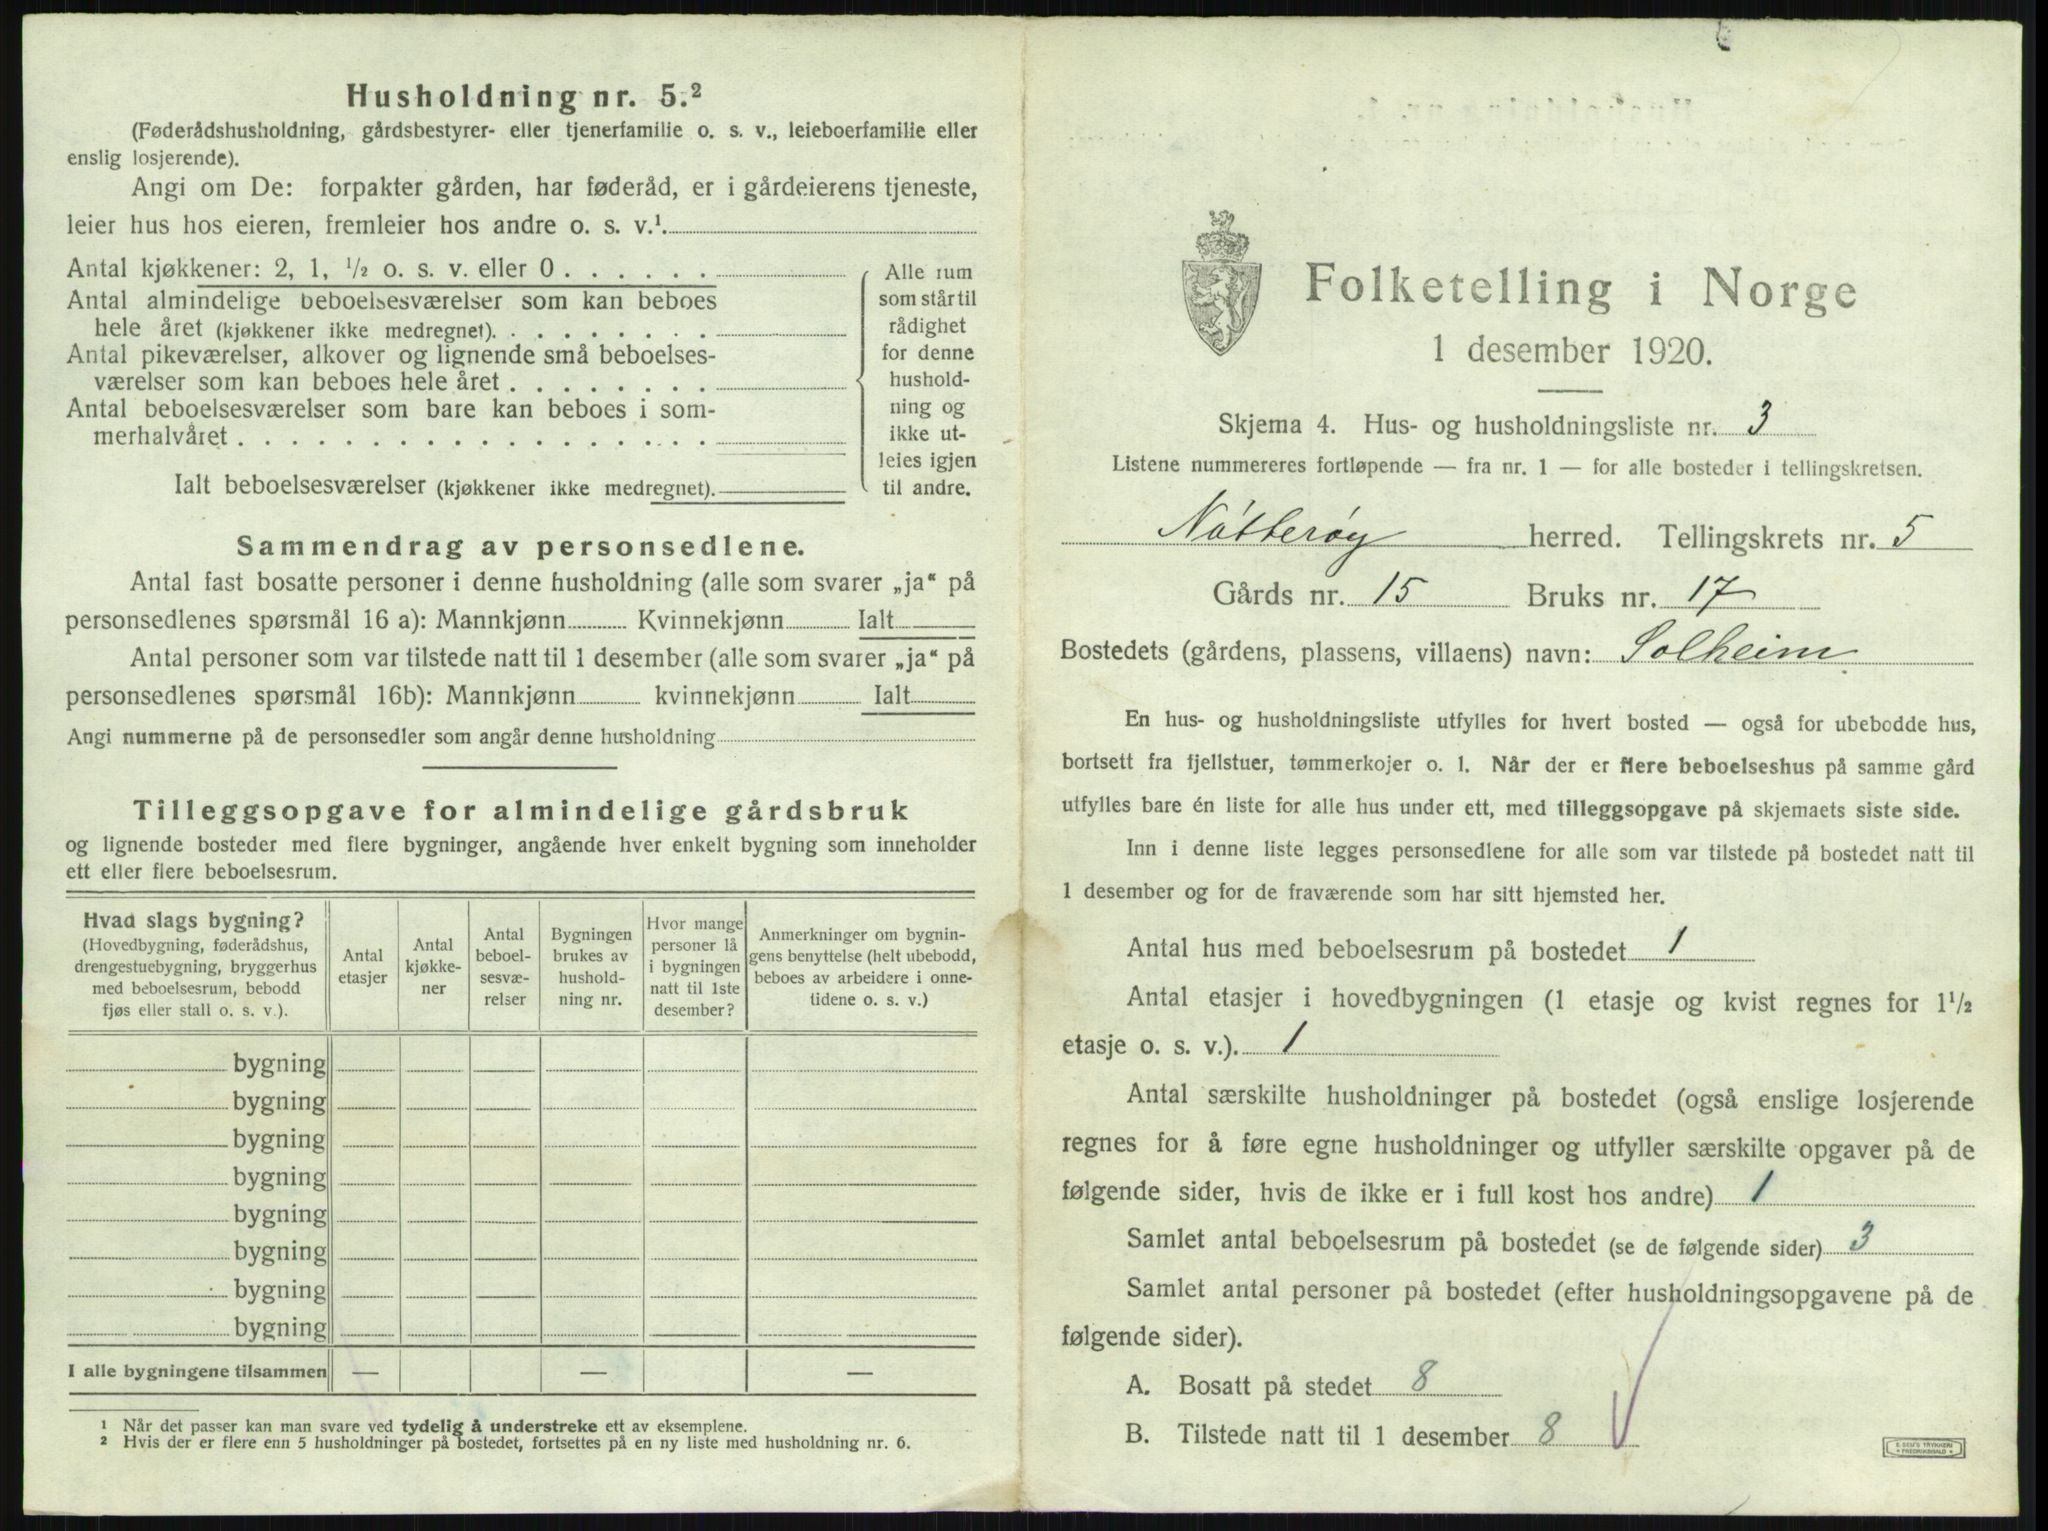 Husholdning nr. 5.²
(Føderådshusholdning, gårdsbestyrer- eller tjenerfamilie o. s. v., leieboerfamilie eller
enslig losjerende).
Angi om De: forpakter gården, har føderåd, er i gårdeierens tjeneste,
leier hus hos eieren, fremleier hos andre o. s. v.¹
Antal kjøkkener: 2, 1, ½ o. s. v. eller 0
Antal almindelige beboelsesværelser som kan beboes
hele året (kjøkkener ikke medregnet).
Antal pikeværelser, alkover og lignende små beboelses-
værelser som kan beboes hele året
Antal beboelsesværelser som bare kan beboes i som-
merhalvåret
Ialt beboelsesværelser (kjøkkener ikke medregnet).
Alle rum
som står til
rådighet
for denne
hushold-
ning og
ikke ut-
leies igjen
til andre.
Sammendrag av personsedlene.
Antal fast bosatte personer i denne husholdning (alle som svarer „ja“ på
personsedlenes spørsmål 16 a): Mannkjønn Kvinnekjønn Ialt
Antal personer som var tilstede natt til 1 desember (alle som svarer „ja“ på
personsedlenes spørsmål 16b): Mannkjønn kvinnekjønn Ialt
Angi nummerne på de personsedler som angår denne husholdning
Tilleggsopgave for almindelige gårdsbruk
og lignende bosteder med flere bygninger, angående hver enkelt bygning som inneholder
ett eller flere beboelsesrum.
Hvad slags bygning?
(Hovedbygning, føderådshus,
drengestuebygning, bryggerhus
med beboelsesrum, bebodd
fjøs eller stall o. s. v.).
Antal
etasjer
Antal
kjøkke-
ner
Antal
beboel-
sesvæ-
relser
Bygningen
brukes av
hushold-
ning nr.
Hvor mange
personer lå
i bygningen
natt til 1ste
desember?
Anmerkninger om bygnin-
gens benyttelse (helt ubebodd,
beboes av arbeidere i onne-
tidene o. s. v.)
bygning
bygning
bygning
bygning
bygning
bygning
bygning
bygning
I alle bygningene tilsammen — — —
¹ Når det passer kan man svare ved tydelig å understreke ett av eksemplene.
² Hvis der er flere enn 5 husholdninger på bostedet, fortsettes på en ny liste med husholdning nr. 6.
Folketelling i Norge
1 desember 1920.
Skjema 4. Hus- og husholdningsliste nr. 3
Listene nummereres fortløpende — fra nr. 1 — for alle bosteder i tellingskretsen.
Nøtterøy herred. Tellingskrets nr. 5
Gårds nr. 15 Bruks nr. 17
Bostedets (gårdens, plassens, villaens) navn: Solheim
En hus- og husholdningsliste utfylles for hvert bosted — også for ubebodde hus,
bortsett fra fjellstuer, tømmerkojer o. l. Når der er flere beboelseshus på samme gård
utfylles bare én liste for alle hus under ett, med tilleggsopgave på skjemaets siste side.
Inn i denne liste legges personsedlene for alle som var tilstede på bostedet natt til
1 desember og for de fraværende som har sitt hjemsted her.
Antal hus med beboelsesrum på bostedet 1
Antal etasjer i hovedbygningen (1 etasje og kvist regnes for 1½
etasje o. s. v.). 1
Antal særskilte husholdninger på bostedet (også enslige losjerende
regnes for å føre egne husholdninger og utfyller særskilte opgaver på de
følgende sider, hvis de ikke er i full kost hos andre) 1
Samlet antal beboelsesrum på bostedet (se de følgende sider) 3
Samlet antal personer på bostedet (efter husholdningsopgavene på de
følgende sider).
A. Bosatt på stedet 8
B. Tilstede natt til 1 desember 8
E. SEM'S TRYKKERI
FREDRIKSHALD